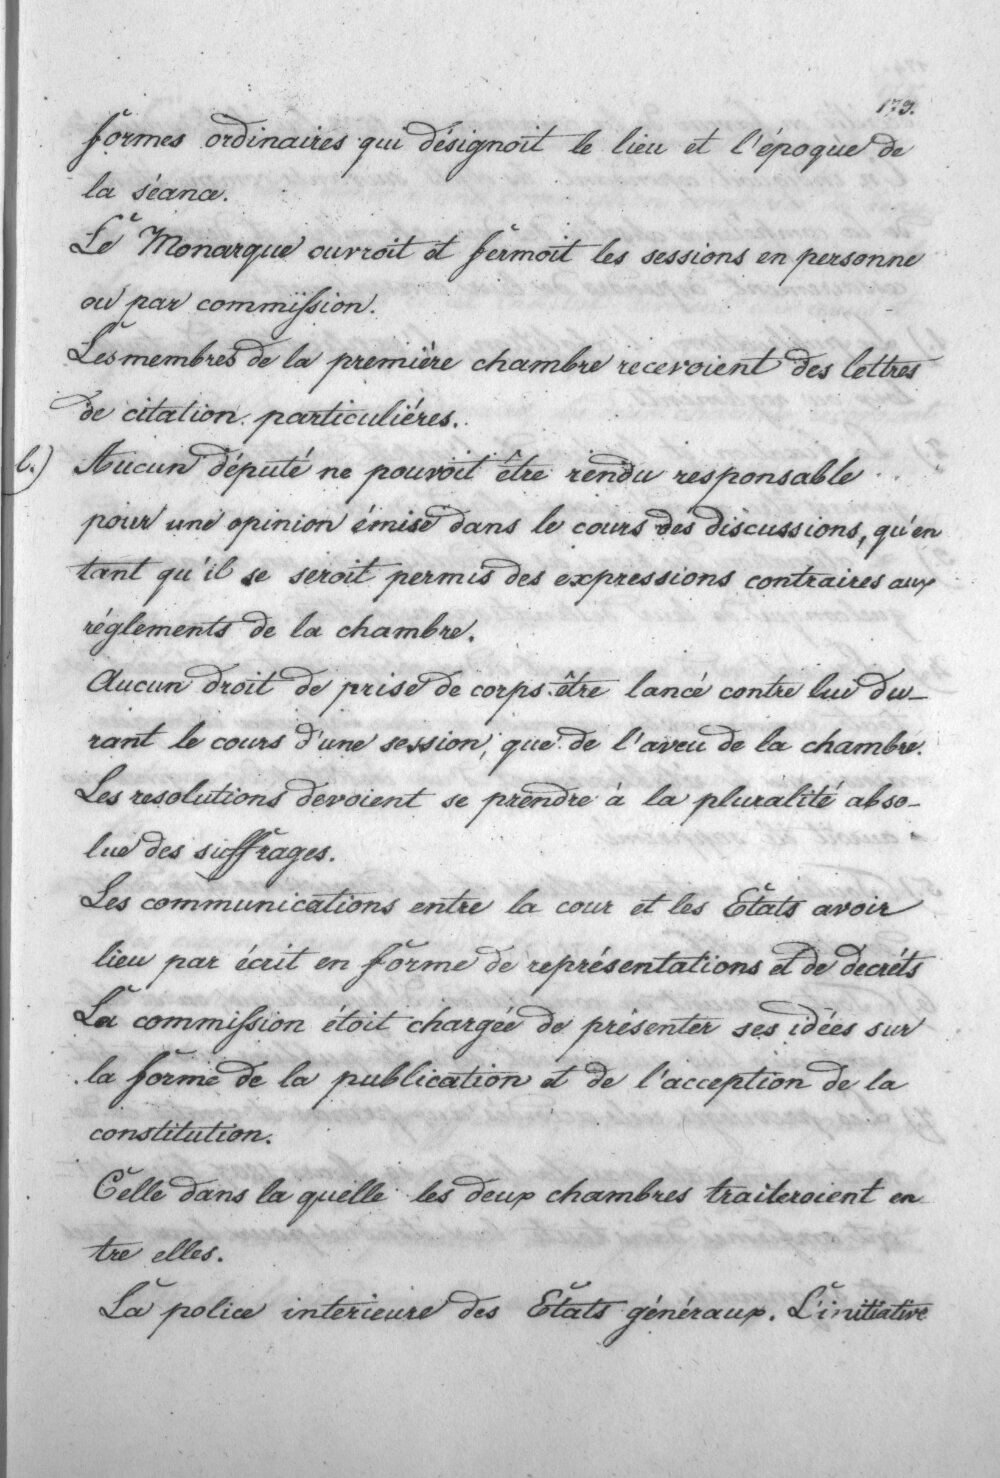 179.
formes ordinaires qui désignoit le lieu et l'époque de
la séance.
Le Monarque ouvroit et fermoit les sessions en personne
ou par commission.
Les membres de la première chambre recevoient des lettres
de citation particuliéres.
b.) Aucun député ne pouvoit être rendu responsable
pour une opinion émise dans le cours des discussions, qu'en
tant qu'il se seroit permis des expressions contraires aux
réglements de la chambre.
Aucun droit de prise de corps être lancé contre lui du-
rant le cours d'une session, que de l'aveu de la chambre.
Les resolutions devoient se prendre à la pluralité abso-
lue des suffrages.
Les communications entre la cour et les Etats avoir
lieu par écrit en forme de représentations et de decréts
La commission étoit chargée de présenter ses idées sur
la forme de la publication et de l'acception de la
constitution.
Celle dans la quelle les deux chambres traiteroient en
tre elles.
La police interieure des Etats généraux. L'initiative